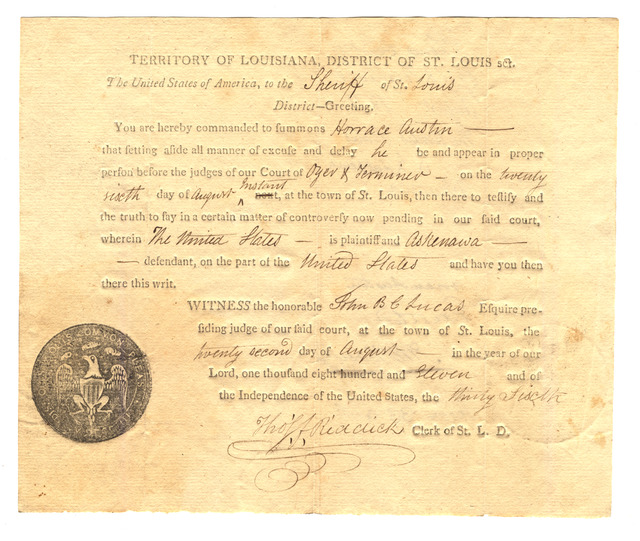 TERRITORY OF LOUISIANA, DISTRICT OF ST. LOUIS sct.
The United States of America, to the Sheriff of St. Louis
District—Greeting.
YOU are hereby commanded to summons Horrace Austin —
that setting aside all manner of excuse and delay he be and appear in proper
person before the judges of our Court of Oyer & Terminer — on the twenty
sixth day of August Instant next, at the town of St. Louis, then there to testify and
the truth to say in a certain matter of controversy now pending in our said court,
wherein The United States — is plaintiff and Askenawa —
— defendant, on the part of the United States and have you then
there this writ.
WITNESS the honorable John B C Lucas Esquire pre-
siding judge of our said court, at the town of St. Louis, the
twenty second day of August — in the year of our
Lord, one thousand eight hundred and Eleven and of
the Independence of the United States, the thirty Sixth
Thos F Riddick Clerk of St. L. D.